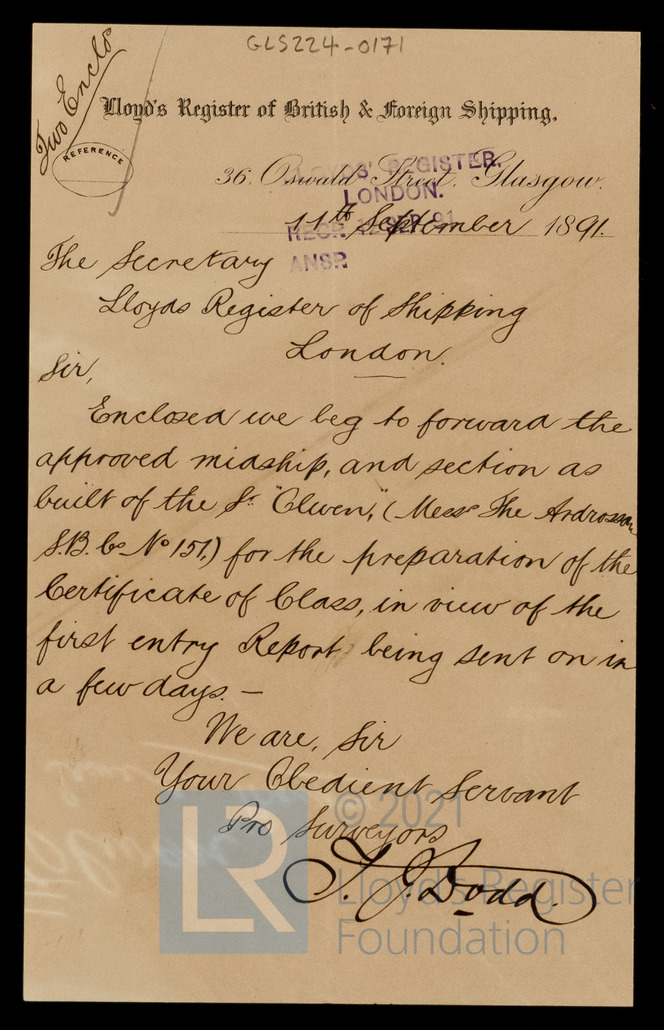 GLS224-0171
Two Enclo
Lloyd's Register of British & Foreign Shipping.
REFERENCE
36. Oswald Street. Glasgow.
LLOYDS' REGISTER.
LONDON.
11th September 1891.
RECD. 12 SEP 91
ANSR
The Secretary
Lloyds Register of Shipping
London.
Sir,
Enclosed we beg to forward the
approved midship, and section as
built of the Sr. "Olwen," (Messs The Ardrossan
S.B. Co No 151.) for the preparation of the
Certificate of Class, in view of the
first entry Report being sent on in
a few days. —
We are, Sir
Your Obedient Servant
Pro Surveyors
T. J. Dodd.
LR
© 2021
Lloyd's Register
Foundation